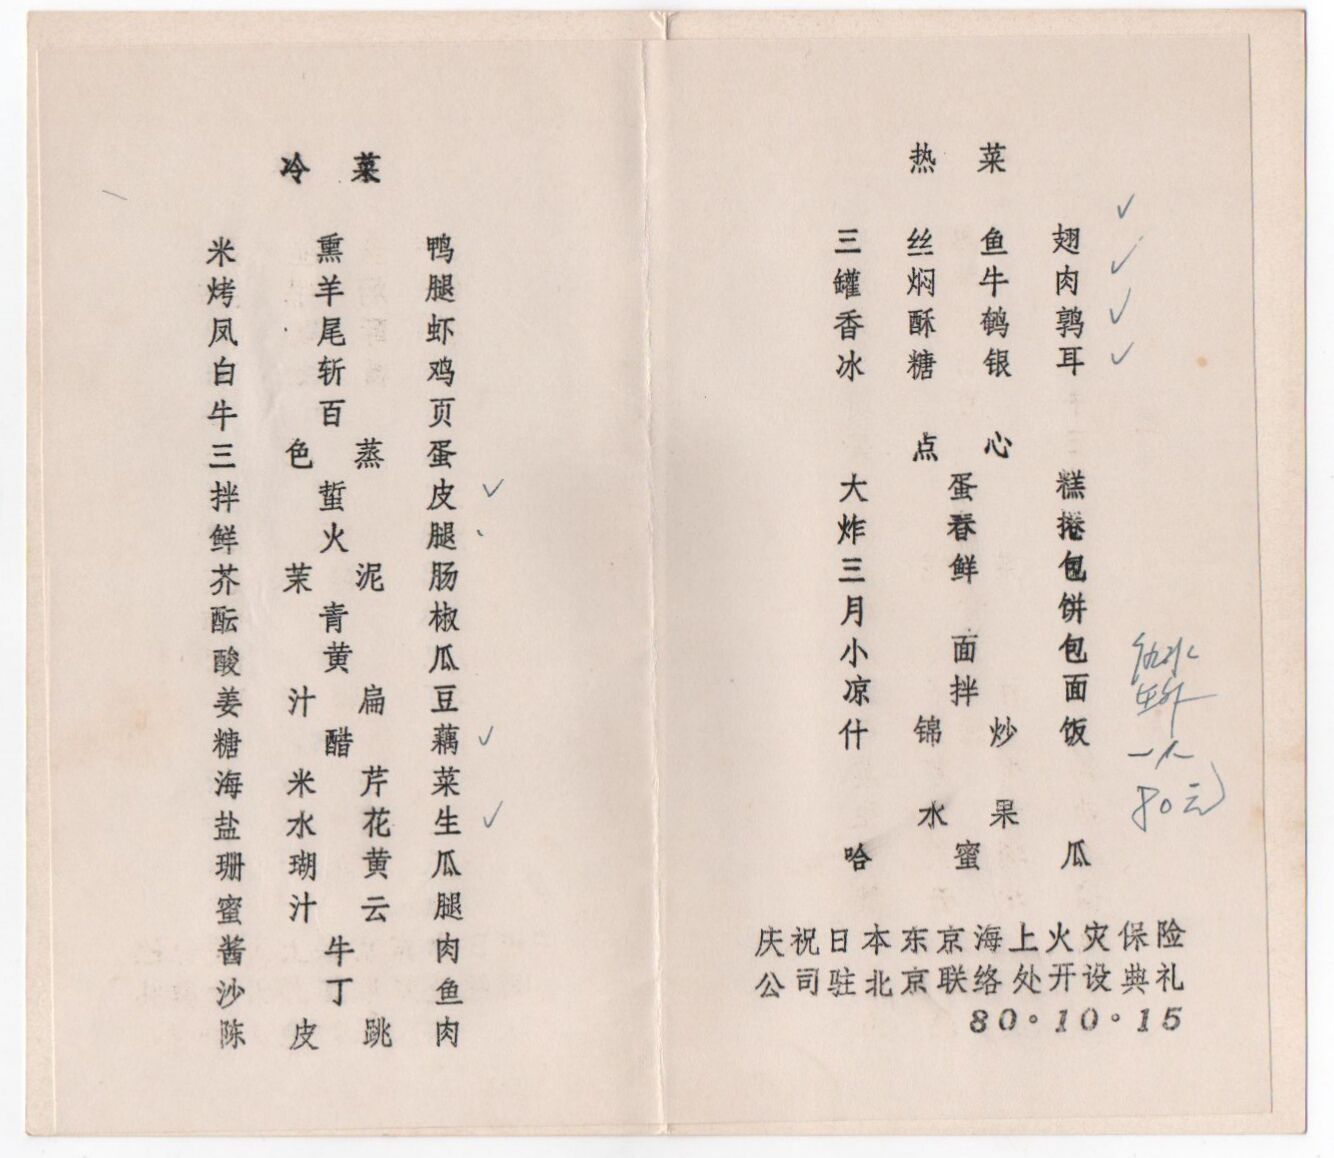 冷菜
米熏鸭
烤羊腿
凤尾虾
白斩鸡
牛百页
三色蒸蛋
拌蜇皮
鲜火腿
芥茉泥肠
酝青椒
酸黄瓜
姜汁扁豆
糖醋藕
海米芹菜
盐水花生
珊瑚黄瓜
蜜汁云腿
酱牛肉
沙丁鱼
陈皮跳肉
热菜
三丝鱼翅
罐焖牛肉
香酥鹌鹑
冰糖银耳
点心
大蛋糕
炸春捲
三鲜包
月饼
小面包
凉拌面
什锦炒饭
水果
哈蜜瓜
庆祝日本东京海上火灾保险
公司驻北京联络处开设典礼
80·10·15
一人
80元